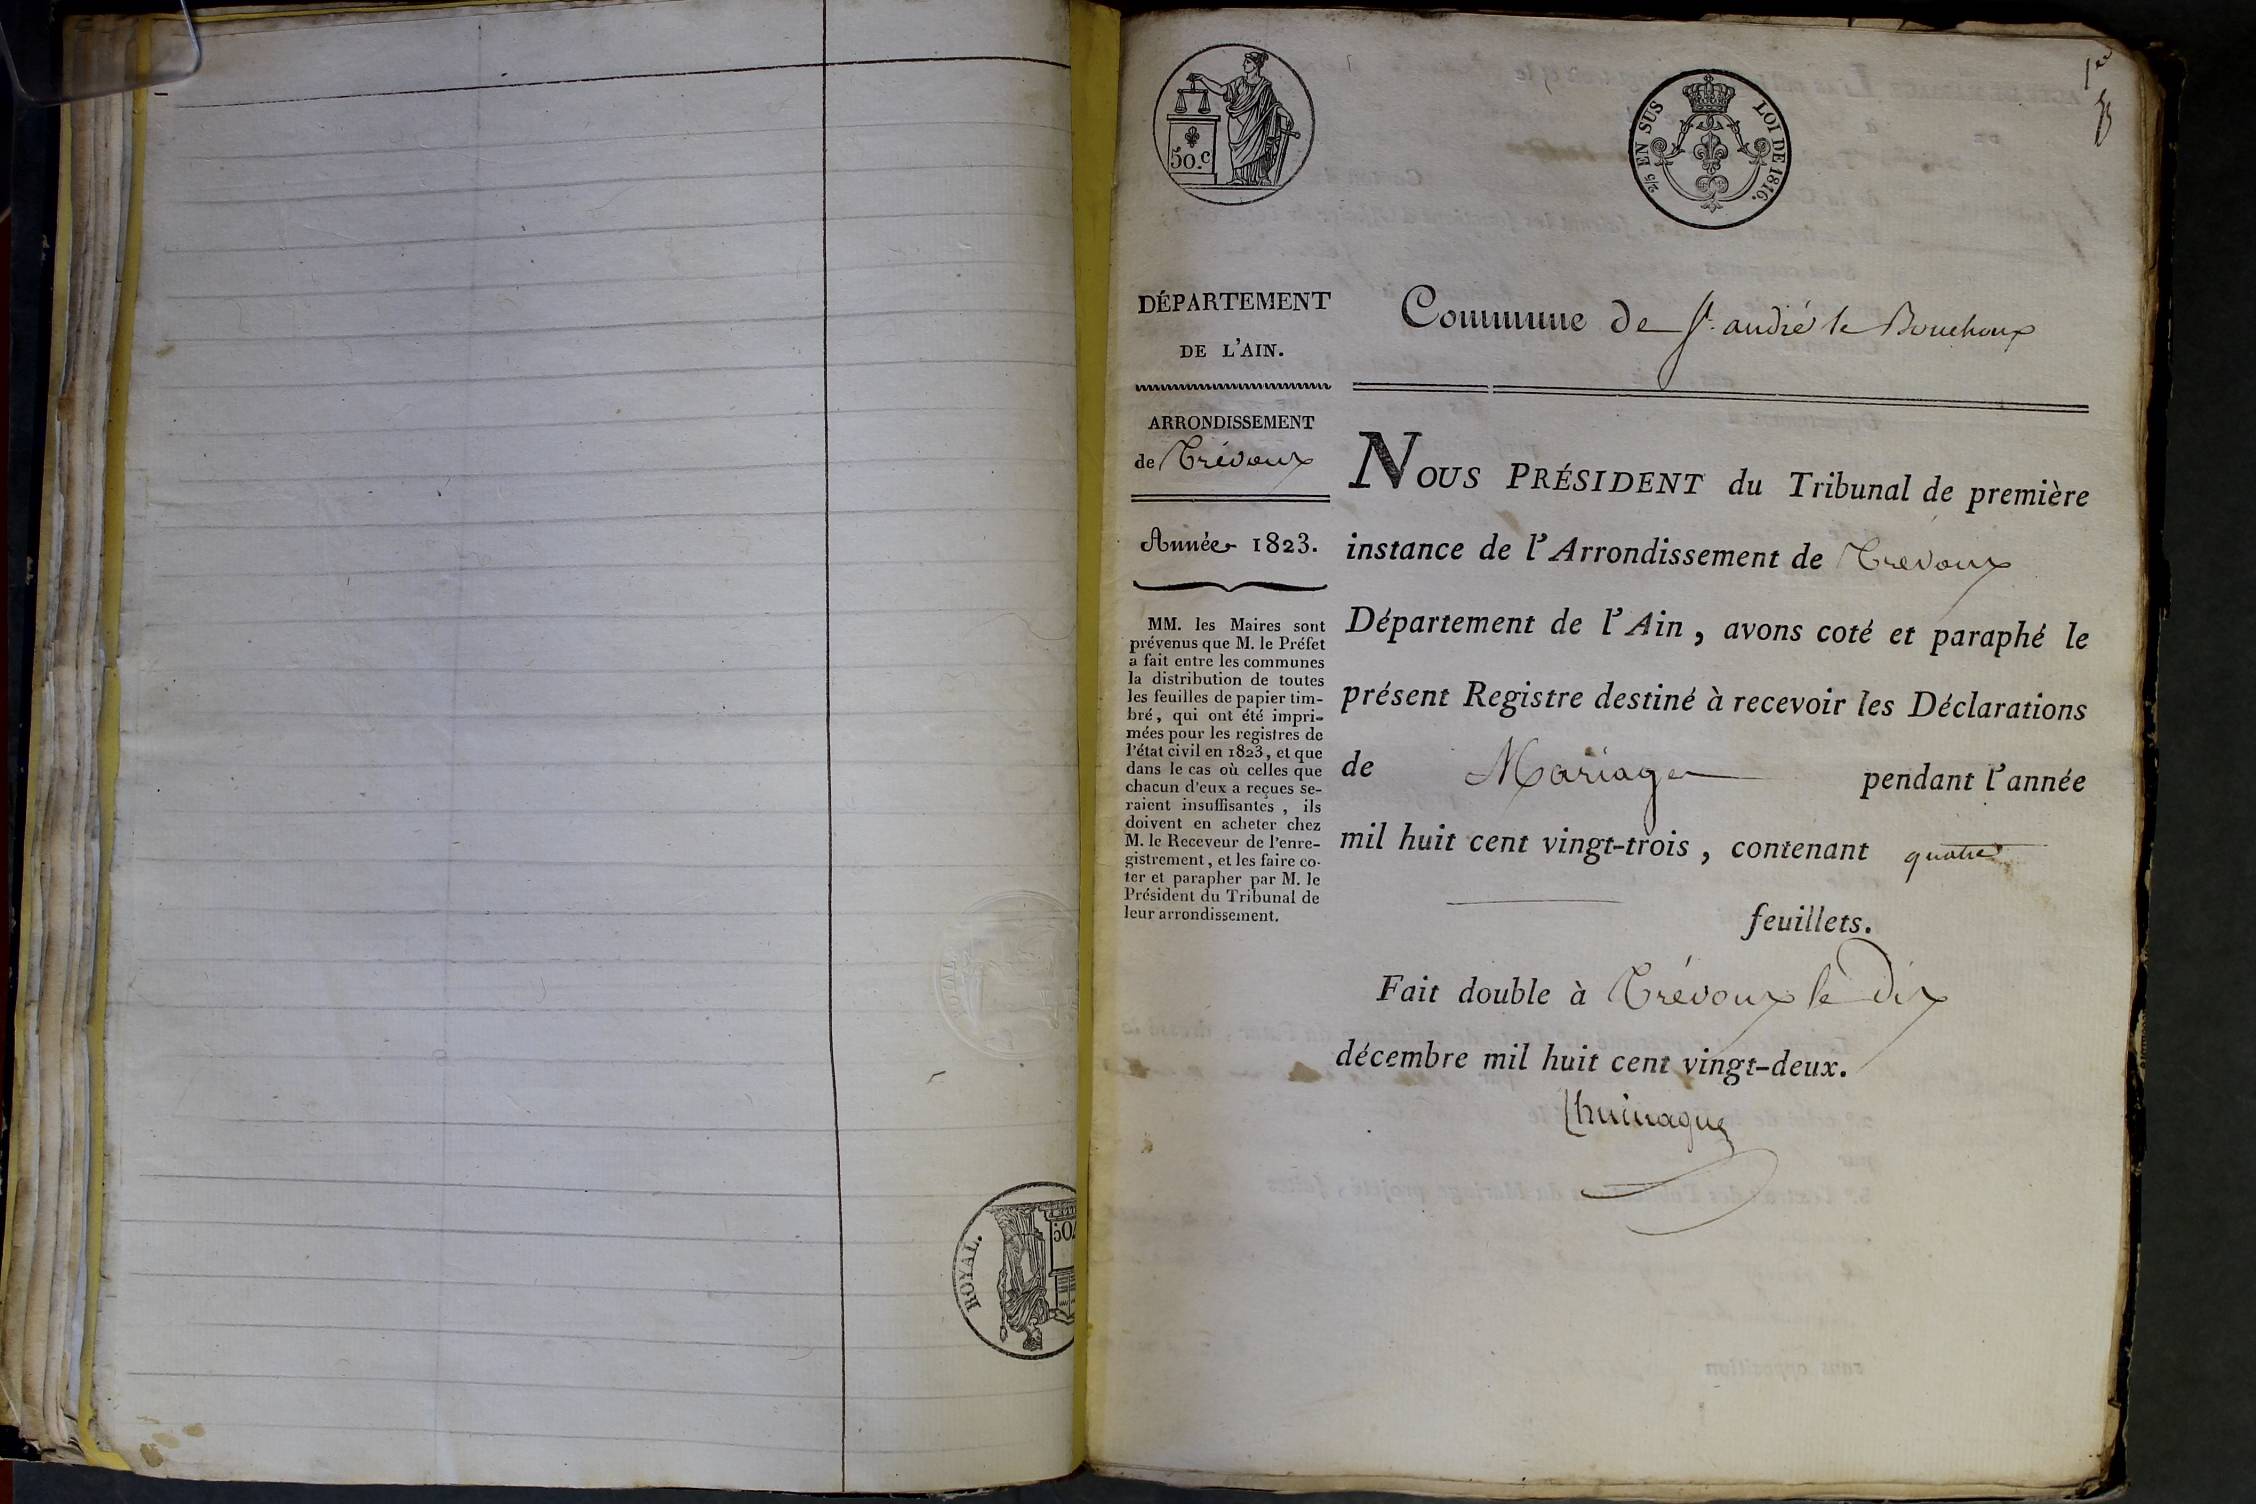 ROYAL.
50
1er
50.c
2/5 EN SUS
LOI DE 1816.
DÉPARTEMENT
DE L'AIN.
ARRONDISSEMENT
de Trévoux
Année 1823.
MM. les Maires sont
prévenus que M. le Préfet
a fait entre les communes
la distribution de toutes
les feuilles de papier tim-
bré, qui ont été impri-
mées pour les registres de
l'état civil en 1823, et que
dans le cas où celles que
chacun d'eux a reçues se-
raient insuffisantes, ils
doivent en acheter chez
M. le Receveur de l'enre-
gistrement, et les faire co-
ter et parapher par M. le
Président du Tribunal de
leur arrondissement.
Commune de St. andré le Bouchoux
NOUS PRÉSIDENT du Tribunal de première
instance de l'Arrondissement de Trevoux
Département de l'Ain, avons coté et paraphé le
présent Registre destiné à recevoir les Déclarations
de Mariage pendant l'année
mil huit cent vingt-trois, contenant quatre
feuillets.
Fait double à Trévoux le dix
décembre mil huit cent vingt-deux.